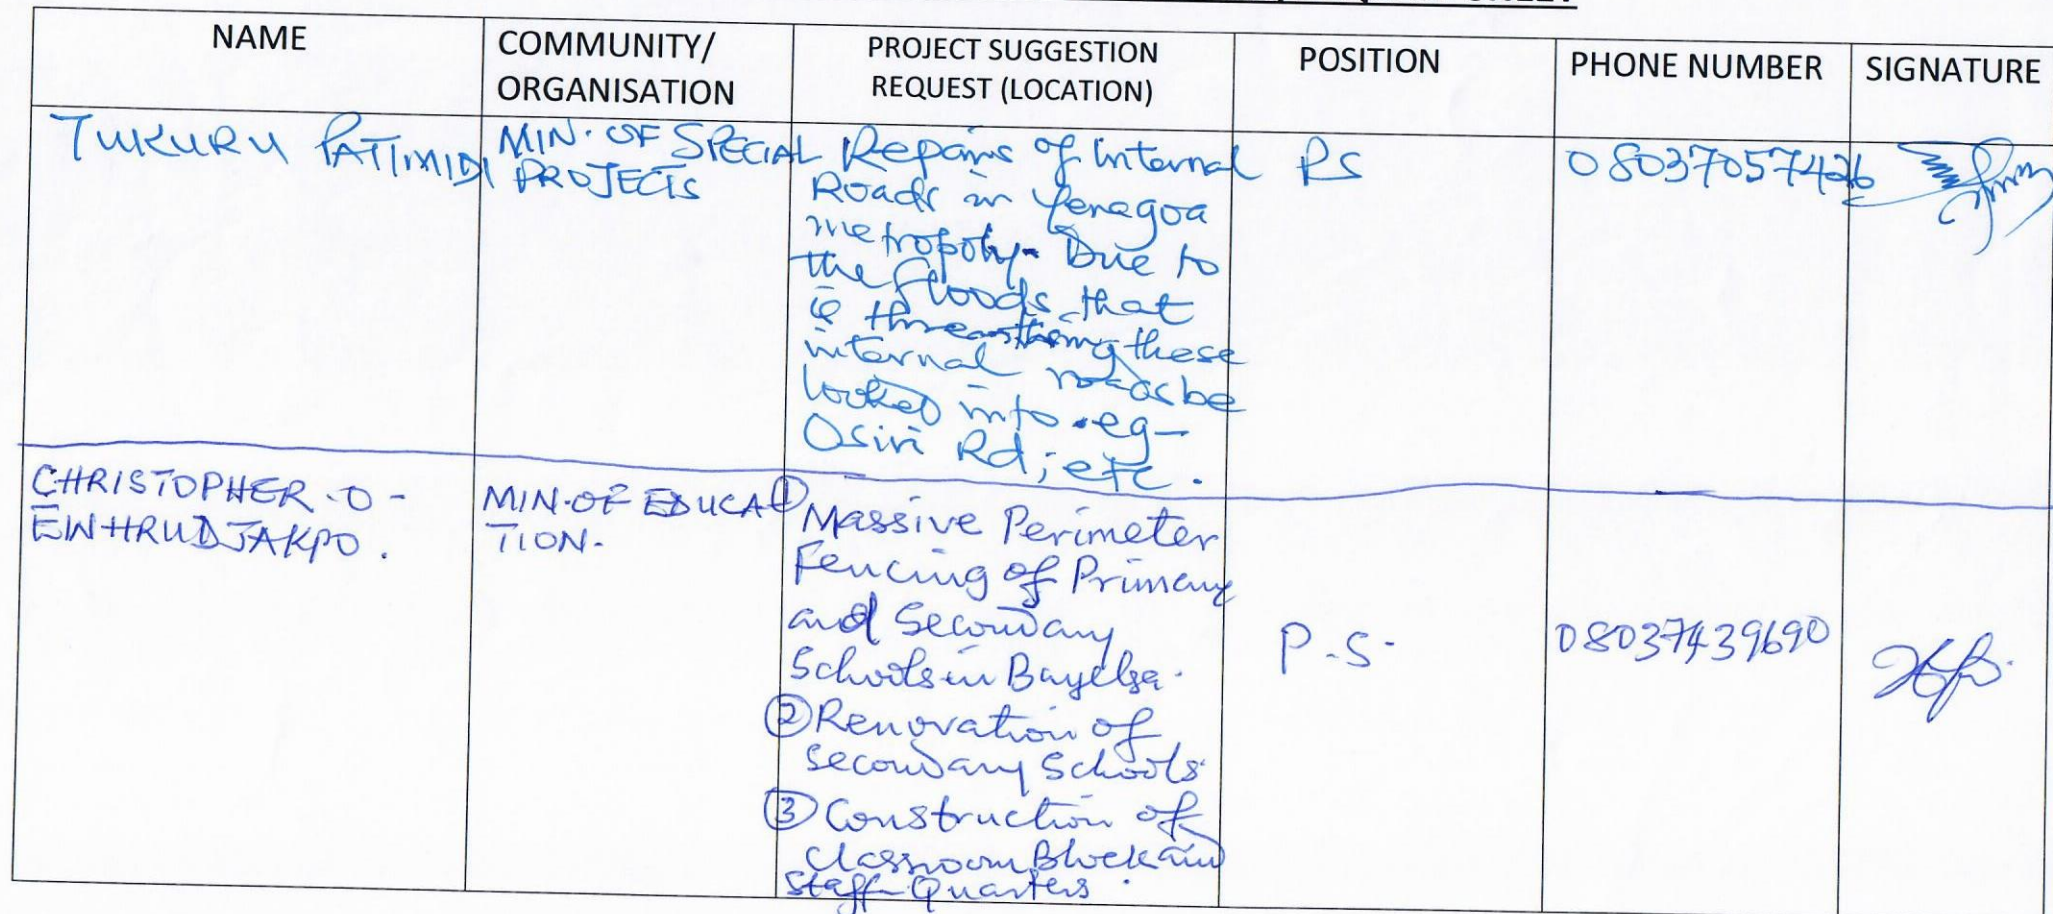 NAME
COMMUNITY/
ORGANISATION
PROJECT SUGGESTION
REQUEST (LOCATION)
POSITION
PHONE NUMBER
SIGNATURE
TUKURU PATTIMIDI
MIN. OF SPECIAL
PROJECTS
Repairs of internal
Roads in Yenagoa
metropoly. Due to
the floods that
is threasthing these
internal roads be
looked into. eg-
Osiri Rd; etc.
PS
08037057426
CHRISTOPHER-O-
EWHRUDJAKPO.
MIN. OF EDUCA
TION.
① Massive Perimeter
Fencing of Primary
and Secondary
Schools in Bayelsa.
② Renovation of
Secondary Schools
③ Construction of
Classroom Block and
Staff Quarters.
P.S-
08037439690